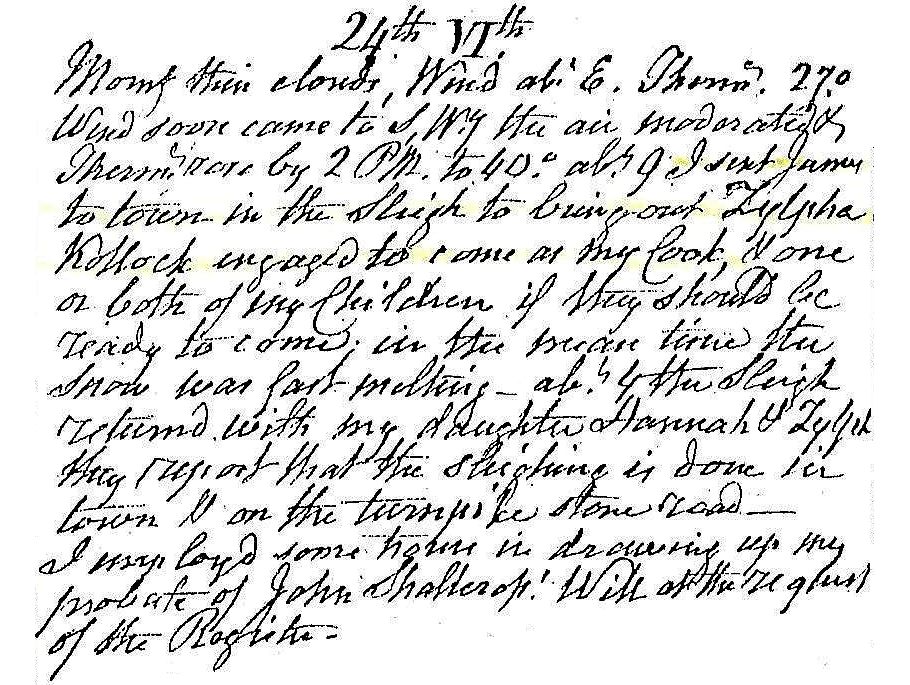 24th VIth
Morng thin clouds, Wind abt E. Thermr. 27°
Wind soon came to S, Wy the air moderated &
Thermr rose by 2 PM. to 40° abt 9 I sent James
to town in the Sleigh to bring out Zylpha
Kollock engaged to come as my Cook, & one
or both of my Children if they should be
ready to come; in the mean time the
snow was fast melting - abt 4 the Sleigh
returnd with my daughter Hannah & Zylph
they report that the sleighing is done in
town & on the turnpike stone road —
I employd some hours in drawing up my
probate of John Shallcross' Will at the request
of the Register -